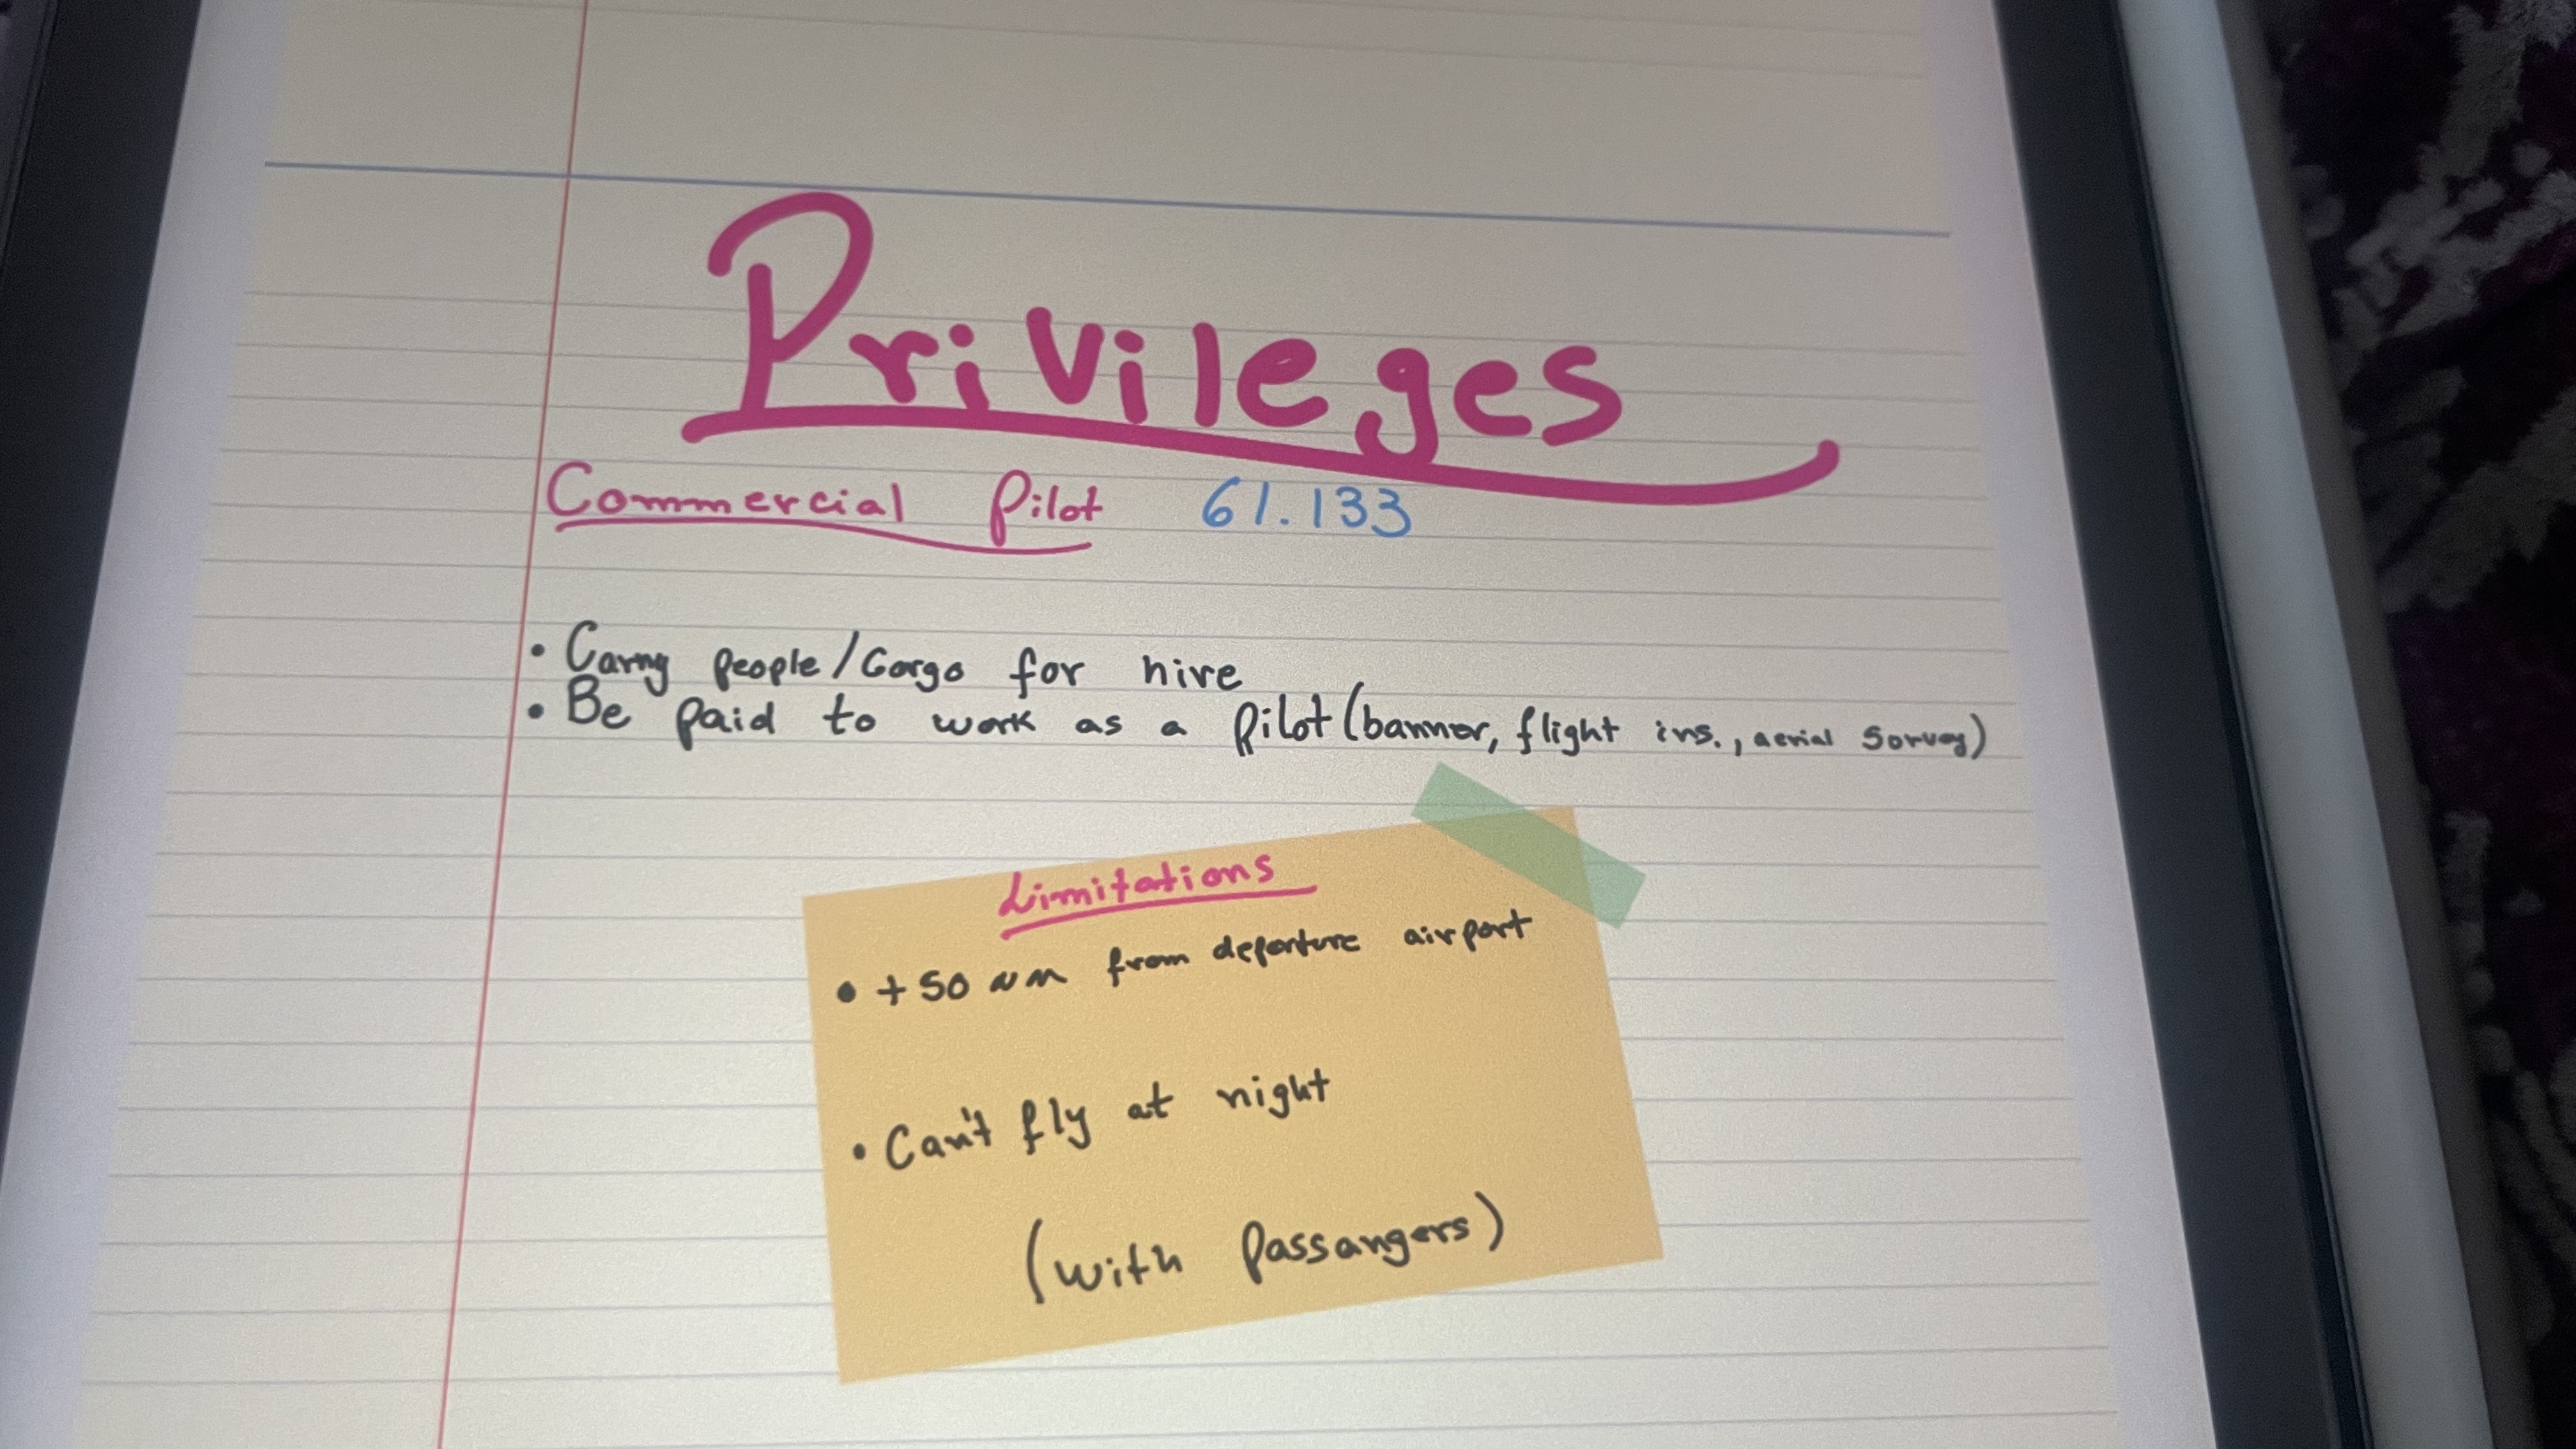 Privileges
Commercial Pilot 61.133
• Carry people/Cargo for hire
• Be paid to work as a Pilot (banner, flight ins., aerial Sorvey)
Limitations
• +50 NM from departure airport
• Can't fly at night
(with Passangers)